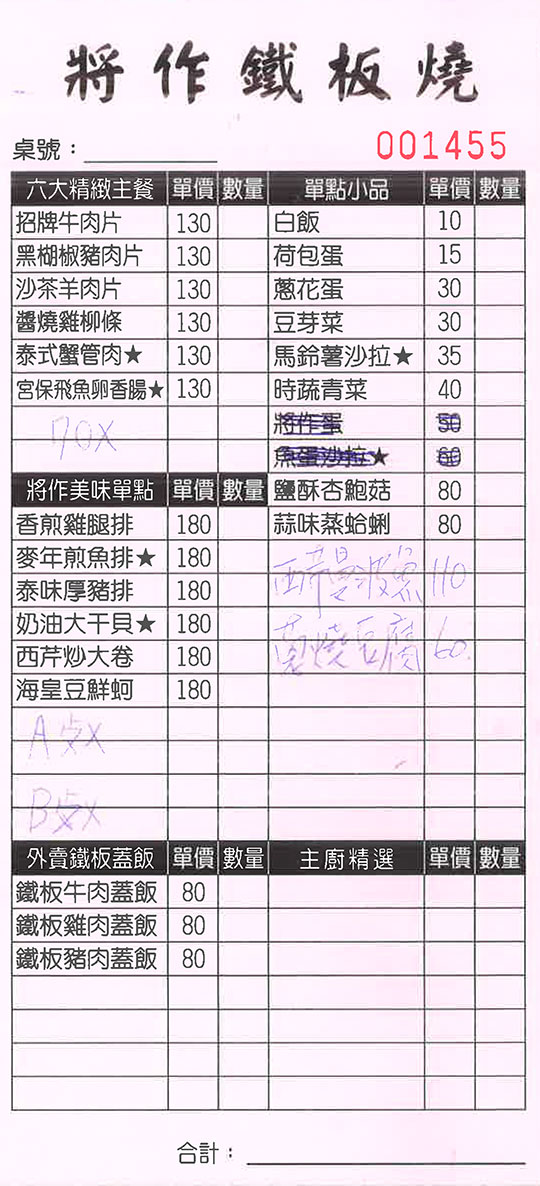 將作鐵板燒
桌號：
001455
六大精緻主餐 單價 數量
招牌牛肉片 130
黑楜椒豬肉片 130
沙茶羊肉片 130
醬燒雞柳條 130
泰式蟹管肉★ 130
宮保飛魚卵香腸★ 130
將作美味單點 單價 數量
香煎雞腿排 180
麥年煎魚排★ 180
泰味厚豬排 180
奶油大干貝★ 180
西芹炒大卷 180
海皇豆鮮蚵 180
A点X
B点X
外賣鐵板蓋飯 單價 數量
鐵板牛肉蓋飯 80
鐵板雞肉蓋飯 80
鐵板豬肉蓋飯 80
單點小品 單價 數量
白飯 10
荷包蛋 15
蔥花蛋 30
豆芽菜 30
馬鈴薯沙拉★ 35
時蔬青菜 40
將作蛋 50
魚蛋沙拉★ 60
鹽酥杏鮑菇 80
蒜味蒸蛤蜊 80
曼波魚 110
燒豆腐 60
主廚精選 單價 數量
合計：